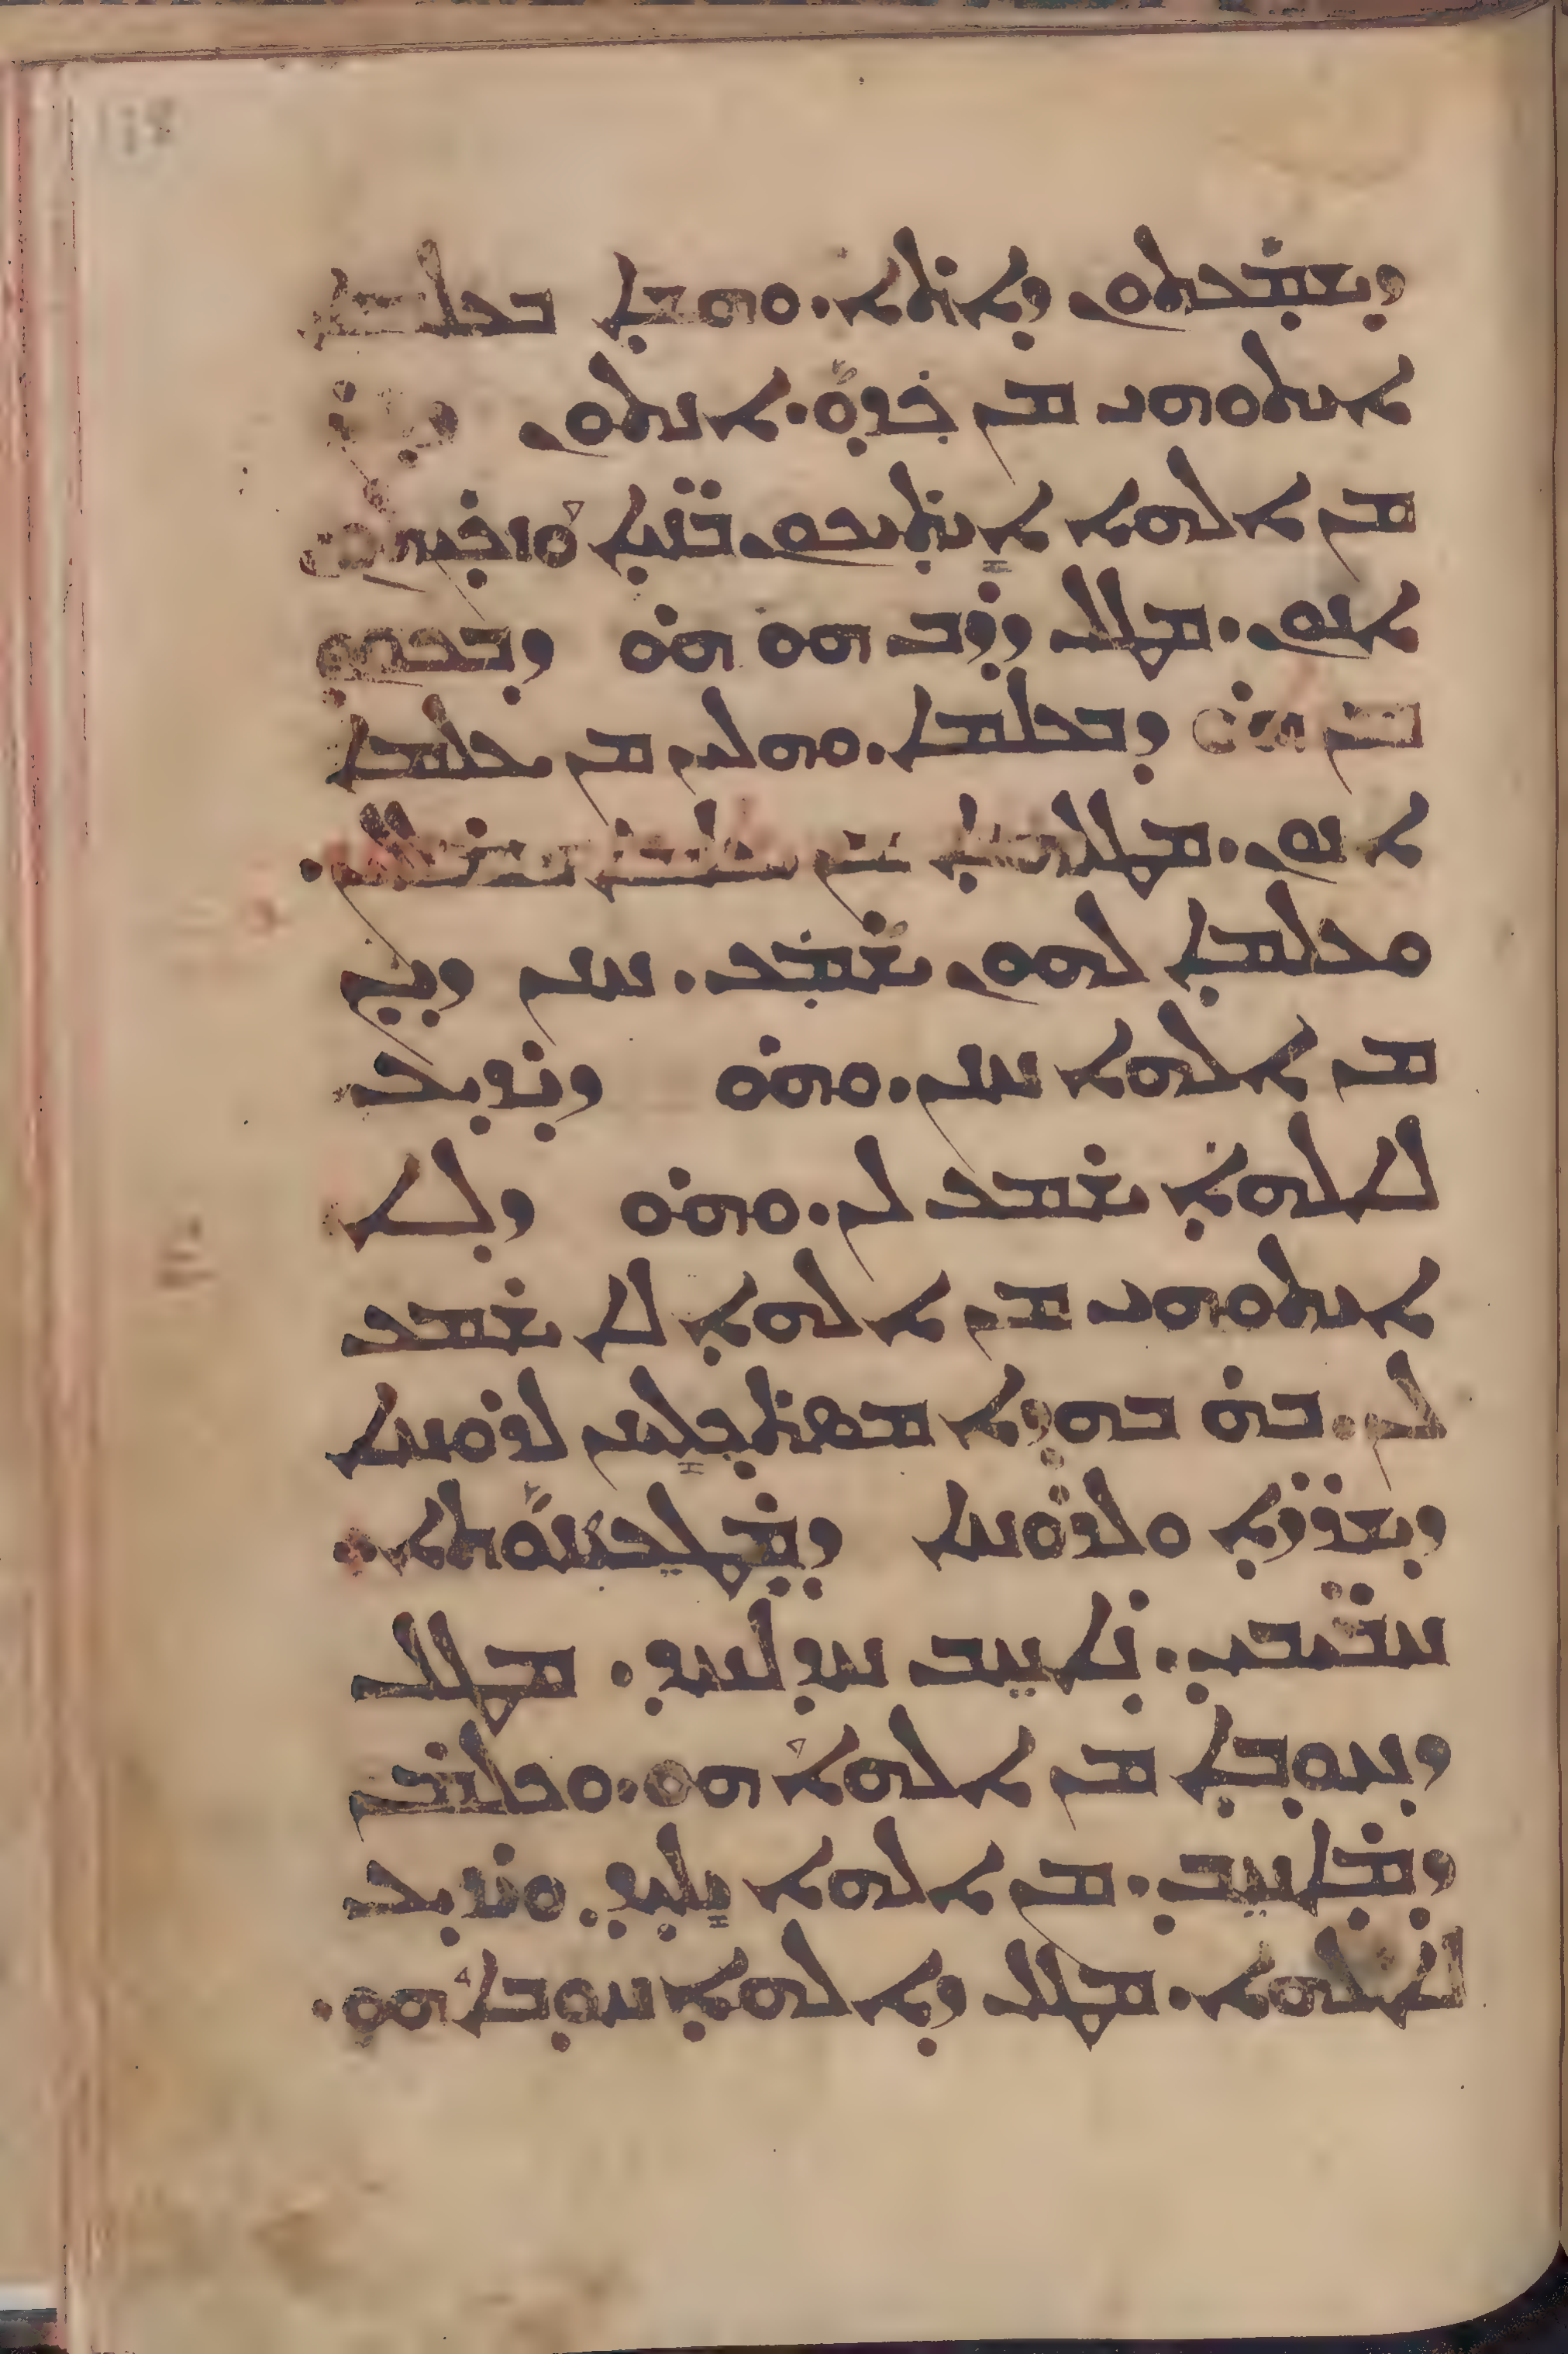 ܕܫܡܥܬܘܢ ܕܐܬܐ. ܘܗܫܐ ܒܥܠܡܐ
ܐܝܬܘܗܝ ܡܢ ܟܕܘ. ܐܢܬܘܢ ܕܝܢ
ܡܢ ܐܠܗܐ ܐܝܬܝܟܘܢ ܒܢܝܐ ܘܙܟܝܬܘܢ
ܐܢܘܢ. ܡܛܠ ܕܪܒ ܗܘ ܗܘ ܕܒܟܘܢ
ܡܢ ܗܘ ܕܒܥܠܡܐ. ܘܗܠܝܢ ܡܢ ܥܠܡܐ
ܐܢܘܢ. ܡܛܠܗܢܐ ܡܢ ܥܠܡܐ ܡܡܠܠܝܢ.
ܘܥܠܡܐ ܠܗܘܢ ܫܡܥ. ܚܢܢ ܕܝܢ
ܡܢ ܐܠܗܐ ܚܢܢ. ܘܗܘ ܕܝܕܥ
ܠܐܠܗܐ ܫܡܥ ܠܢ. ܘܗܘ ܕܠܐ
ܐܝܬܘܗܝ ܡܢ ܐܠܗܐ ܠܐ ܫܡܥ
ܠܢ. ܒܗ ܒܗܕܐ ܡܣܬܟܠܝܢܢ ܠܪܘܚܐ
ܕܫܪܪܐ ܘܠܪܘܚܐ ܕܡܛܥܝܢܘܬܐ.
ܚܒܝܒܝ. ܢܐܚܒ ܚܕ ܠܚܕ. ܡܛܠ
ܕܚܘܒܐ ܡܢ ܐܠܗܐ ܗܘ. ܘܟܠܡܢ
ܕܡܐܚܒ. ܡܢ ܐܠܗܐ ܝܠܝܕ. ܘܝܕܥ
ܠܐܠܗܐ. ܡܛܠ ܕܐܠܗܐ ܚܘܒܐ ܗܘ.